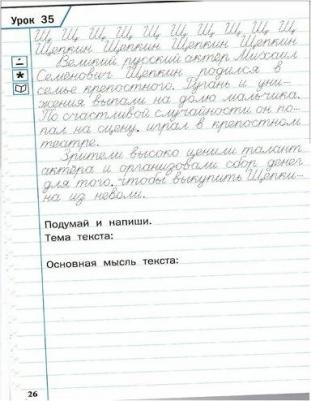 Урок 35
Щ Щ Щ Щ Щ Щ Щ Щ Щ Щ
Щепкин Щепкин Щепкин Щепкин
Великий русский актёр Михаил
Семёнович Щепкин родился в
семье крепостного. Ругань и уни-
жения выпали на долю мальчика.
По счастливой случайности он по-
пал на сцену, играл в крепостном
театре.
Зрители высоко ценили талант
актёра и организовали сбор денег
для того, чтобы выкупить Щепки-
на из неволи.
Подумай и напиши.
Тема текста:
Основная мысль текста:
26